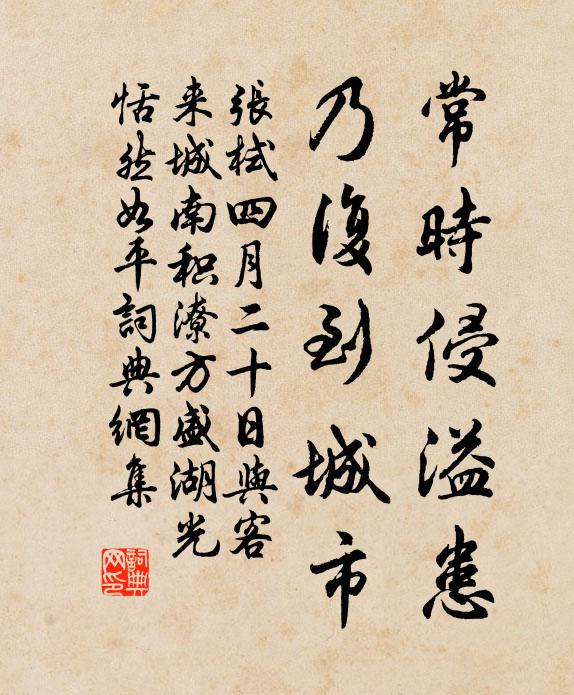 常時侵溢患
乃復到城市
張栻四月二十日與客
来城南积潦方盛湖光
恬然如平詞典網集
詞典网印